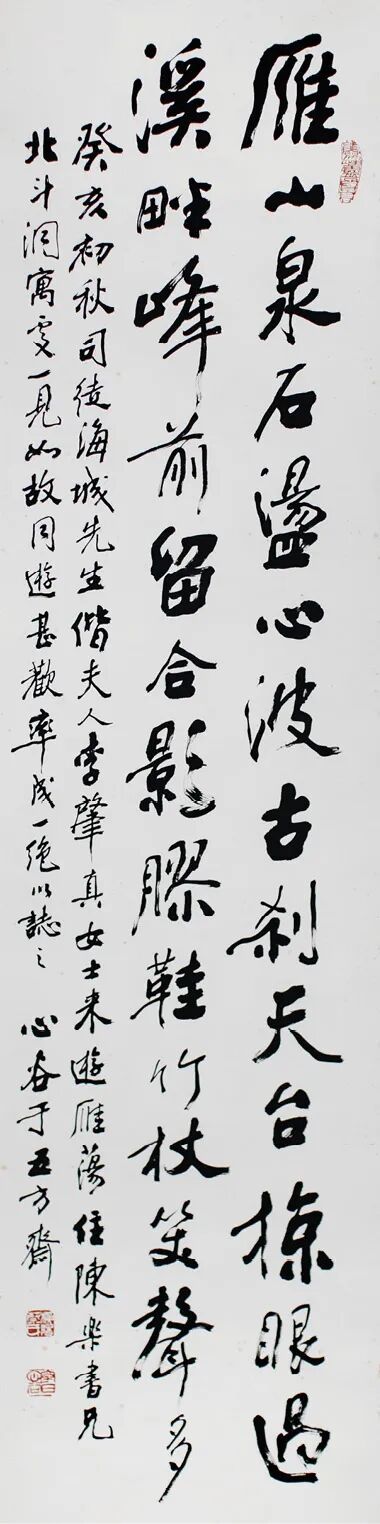 雁山泉石盪心波古刹天台掠眼過
溪畔峰前留合影膠鞋竹杖笑聲多
癸亥初秋司徒海城先生偕夫人李肇真女士来遊雁蕩住陳樂書兄
北斗洞寓雯一見如故同遊甚歡率成一絶以誌之 心谷于五方齋